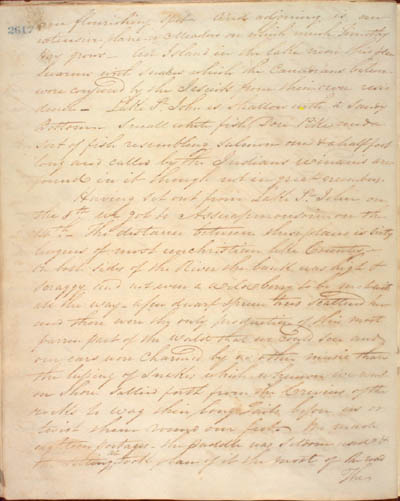 2617
flourishing And adjoining is an
extensive plane or Meadow on which much Timothy
Hay grows - An Island in the Lake near this
Swarms with Snakes which the Canadians believe
were confined by the Jesuits from their own resi
dence - Lake St John is Shallow with a Sandy
Bottom Small white fish, Dore Pike and a
Sort of fish resembling Salmon one & a half foot
long and called by the Indians winanis are
found in it though not in great numbers.
Having set out from Lake St John on
the 8th we got to on the
14th The distance between these places is Sixty
leagues of most unchristian like Country -
On both Sides of the River the bank was high &
craggy And not even a to be met with
all the way - a few dwarf Spruce trees Scattered here
and there were the only productions of this most
barren part of the World that we could See and
our ears were Charmed by no other music than
the hissing of Snakes which whenever we were
on Shore Sallied forth from the Crevices of the
rocks to wag their long tails before us or
twist them round our feet. We made
eighteen Portages - the paddle was Seldom used &
the Setting took place of it the most of the road
The